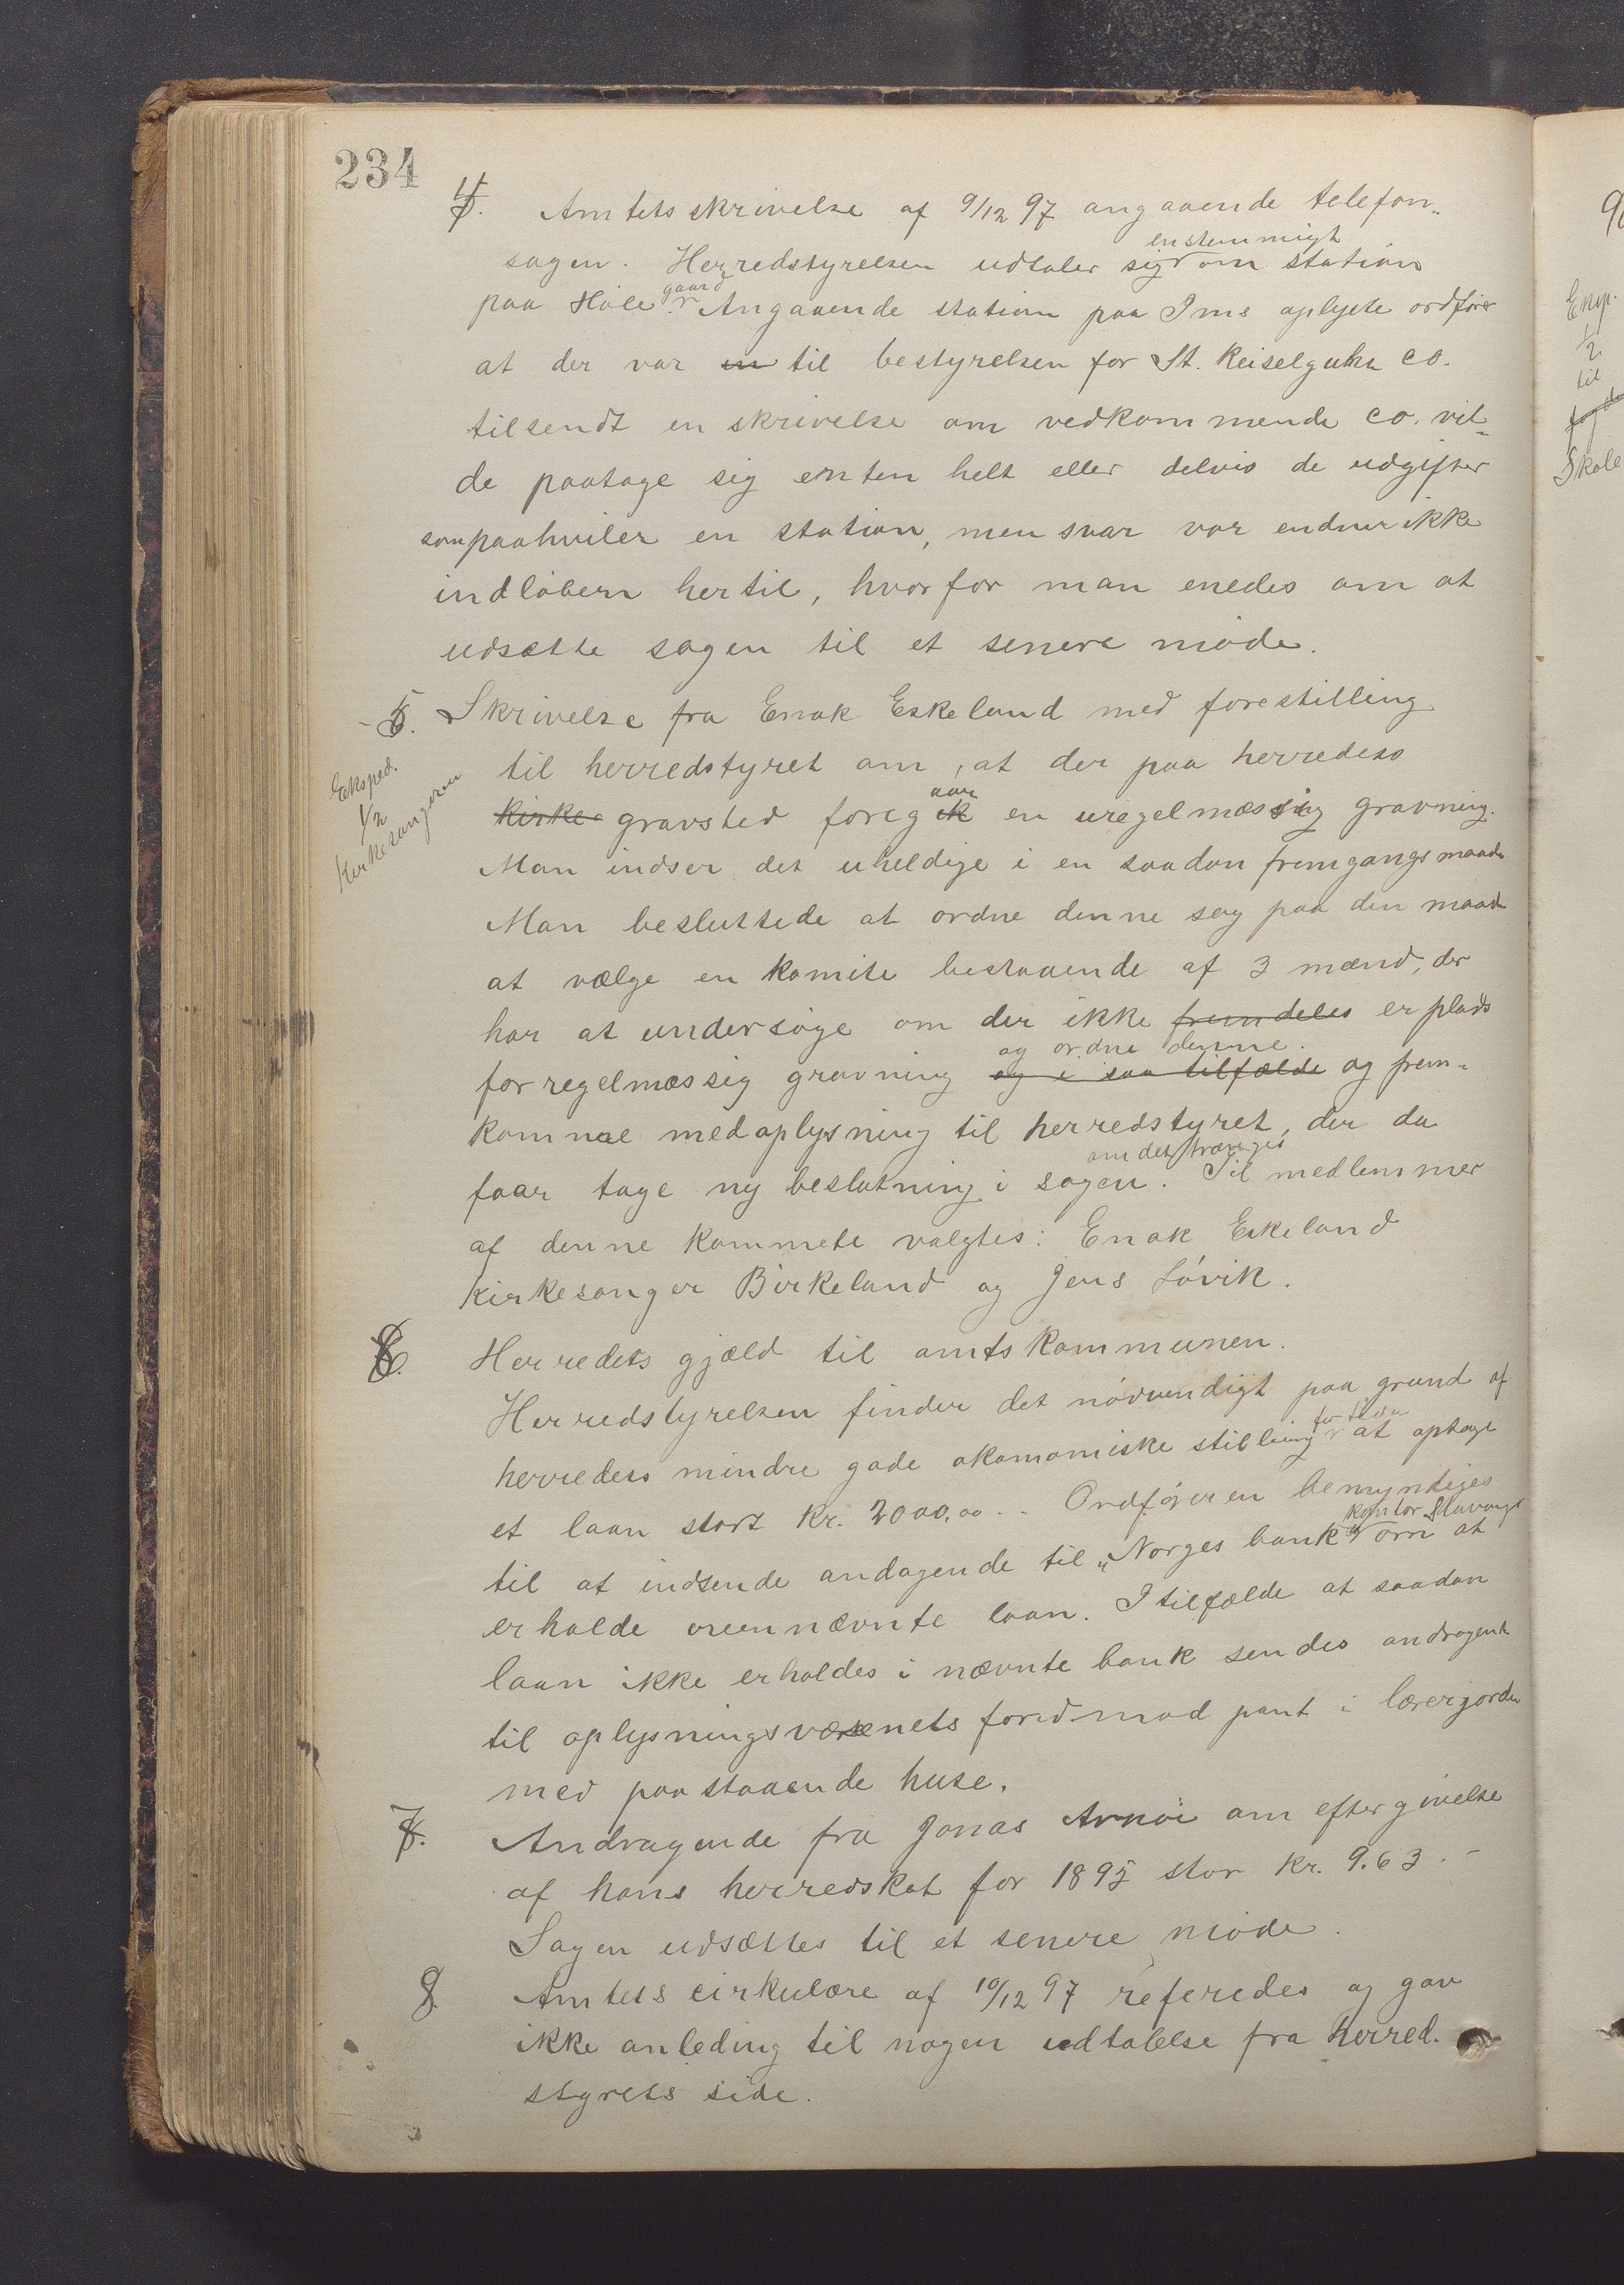 234
4. Amtets skrivelse af 9/12 97 angaaende telefon-
enstemmigt
sagen. Herredstyrelsen udtaler sig om station
gaard
paa Høle. Angaaende station paa Ims oplyste ordfører
at der var en til bestyrelsen for St. Keiselguhr Co.
tilsendt en skrivelse om vedkommende co. vil-
de paatage sig enten helt eller delvis de udgifter
som paahviler en station, men svar var endnu ikke
indløbern hertil, hvorfor man enedes om at
udsætte sagen til et senere møde.
5. Skrivelse fra Enok Eskeland med forestilling
til herredstyret om, at der paa herredets
Eksped.
1/2
Kirkesangeren
aar
kirke- gravsted foregik en uregelmæssig gravning.
Man indser det uheldige i en saadan fremgangsmaade
Man besluttede at ordne denne sag paa den maade
at vælge en komite bestaaende af 3 mænd, der
har at undersøge om der ikke fremdeles er plads
og ordne denne.
for regelmæssig gravning og i saa tilfælde og frem-
komme med oplysning til herredstyret, der da
om det trænges
faar tage ny beslutning i sagen. Til medlemmer
af denne kommete valgtes: Enok Eskeland
kirkesanger Birkeland og Jens Løvik.
6. Herredets gjæld til amtskommunen.
Herredstyrelsen finder det nødvendigt paa grund af
herredets mindre gode økomomiske stilling at optage
et laan stort kr. 2000,00. Ordføreren bemyndiges
kontor Stavanger
til at indsende andagende til „Norges bank" om at
erholde ovennævnte laan. I tilfælde at saadan
laan ikke erholdes i nævnte bank sendes andragende
til oplysningsvæsenets fond mod pant i lærerjorden
med paastaaende huse.
7. Andragende fra Jonas Arnøi om eftergivelse
af hans herredskat for 1895 stor kr. 9.63.-
Sagen udsættes til et senere møde.
8. Amtets cirkulære af 10/12 97 referedes og gav
ikke anleding til nogen udtalelse fra herred-
styrets side.
Exp.
1/2
til
Skole